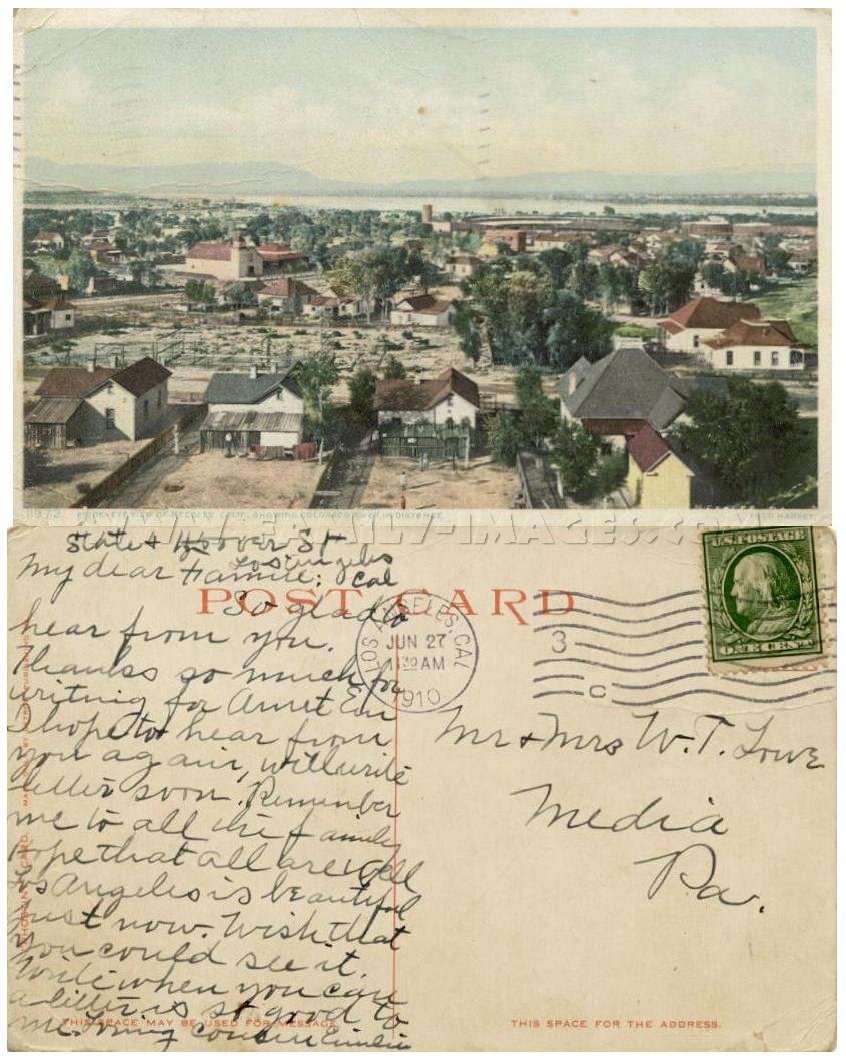 11973. BIRDSEYE VIEW OF NEEDLES, CALIF., SHOWING COLORADO RIVER IN DISTANCE.
FRED HARVEY.
WWW.FAMILY-IMAGES.COM
State & Hoover St
Los Angeles
Cal
My dear Fannie:
POST CARD
So glad to
hear from you.
Thanks so much for
writing for Aunt Em
I hope to hear from
you again, will write
letter soon. Remember
me to all the family
Hope that all are well
Los Angeles is beautiful
just now. Wish that
you could see it.
Write when you can
a letter is so good to
me. Loving cousin
THIS SPACE MAY BE USED FOR MESSAGE.
LOS ANGELES, CAL.
JUN 27
11 30 AM
1910
3
C
U.S. POSTAGE
ONE CENT
Mr & Mrs W. T. Lowe
Media
Pa.
THIS SPACE FOR THE ADDRESS.